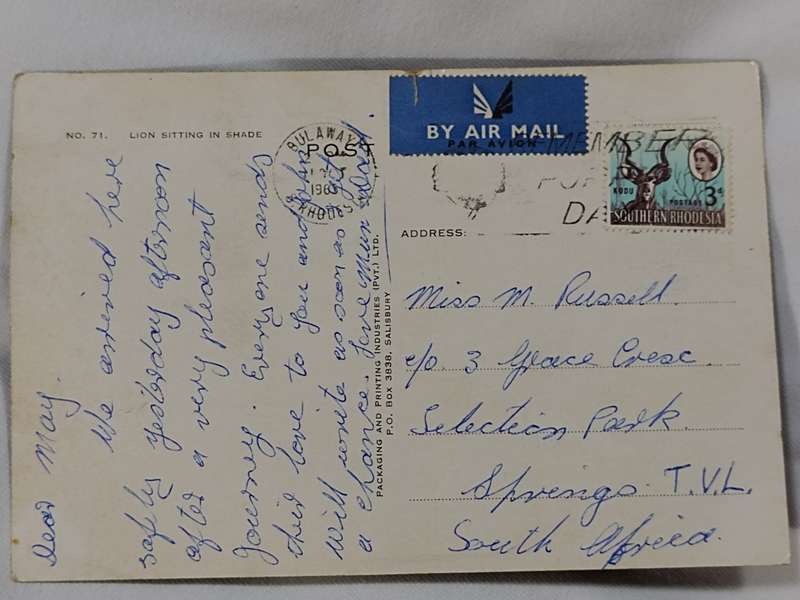 NO. 71. LION SITTING IN SHADE
Dear May.
We arrived here
safely yesterday afternoon
after a very pleasant
journey. Everyone sends
their love to you and
will write as soon as I get
a chance. Love Mum
BULAWAYO
POST
RHODES
PACKAGING AND PRINTING INDUSTRIES (PVT.) LTD.
P.O. BOX 3838, SALISBURY
BY AIR MAIL
PAR AVION
KUDU
POSTAGE
3d
SOUTHERN RHODESIA
ADDRESS:
Miss M. Russell.
c/o 3 Grace Cresc.
Selection Park.
Springs T.V.L.
South Africa.